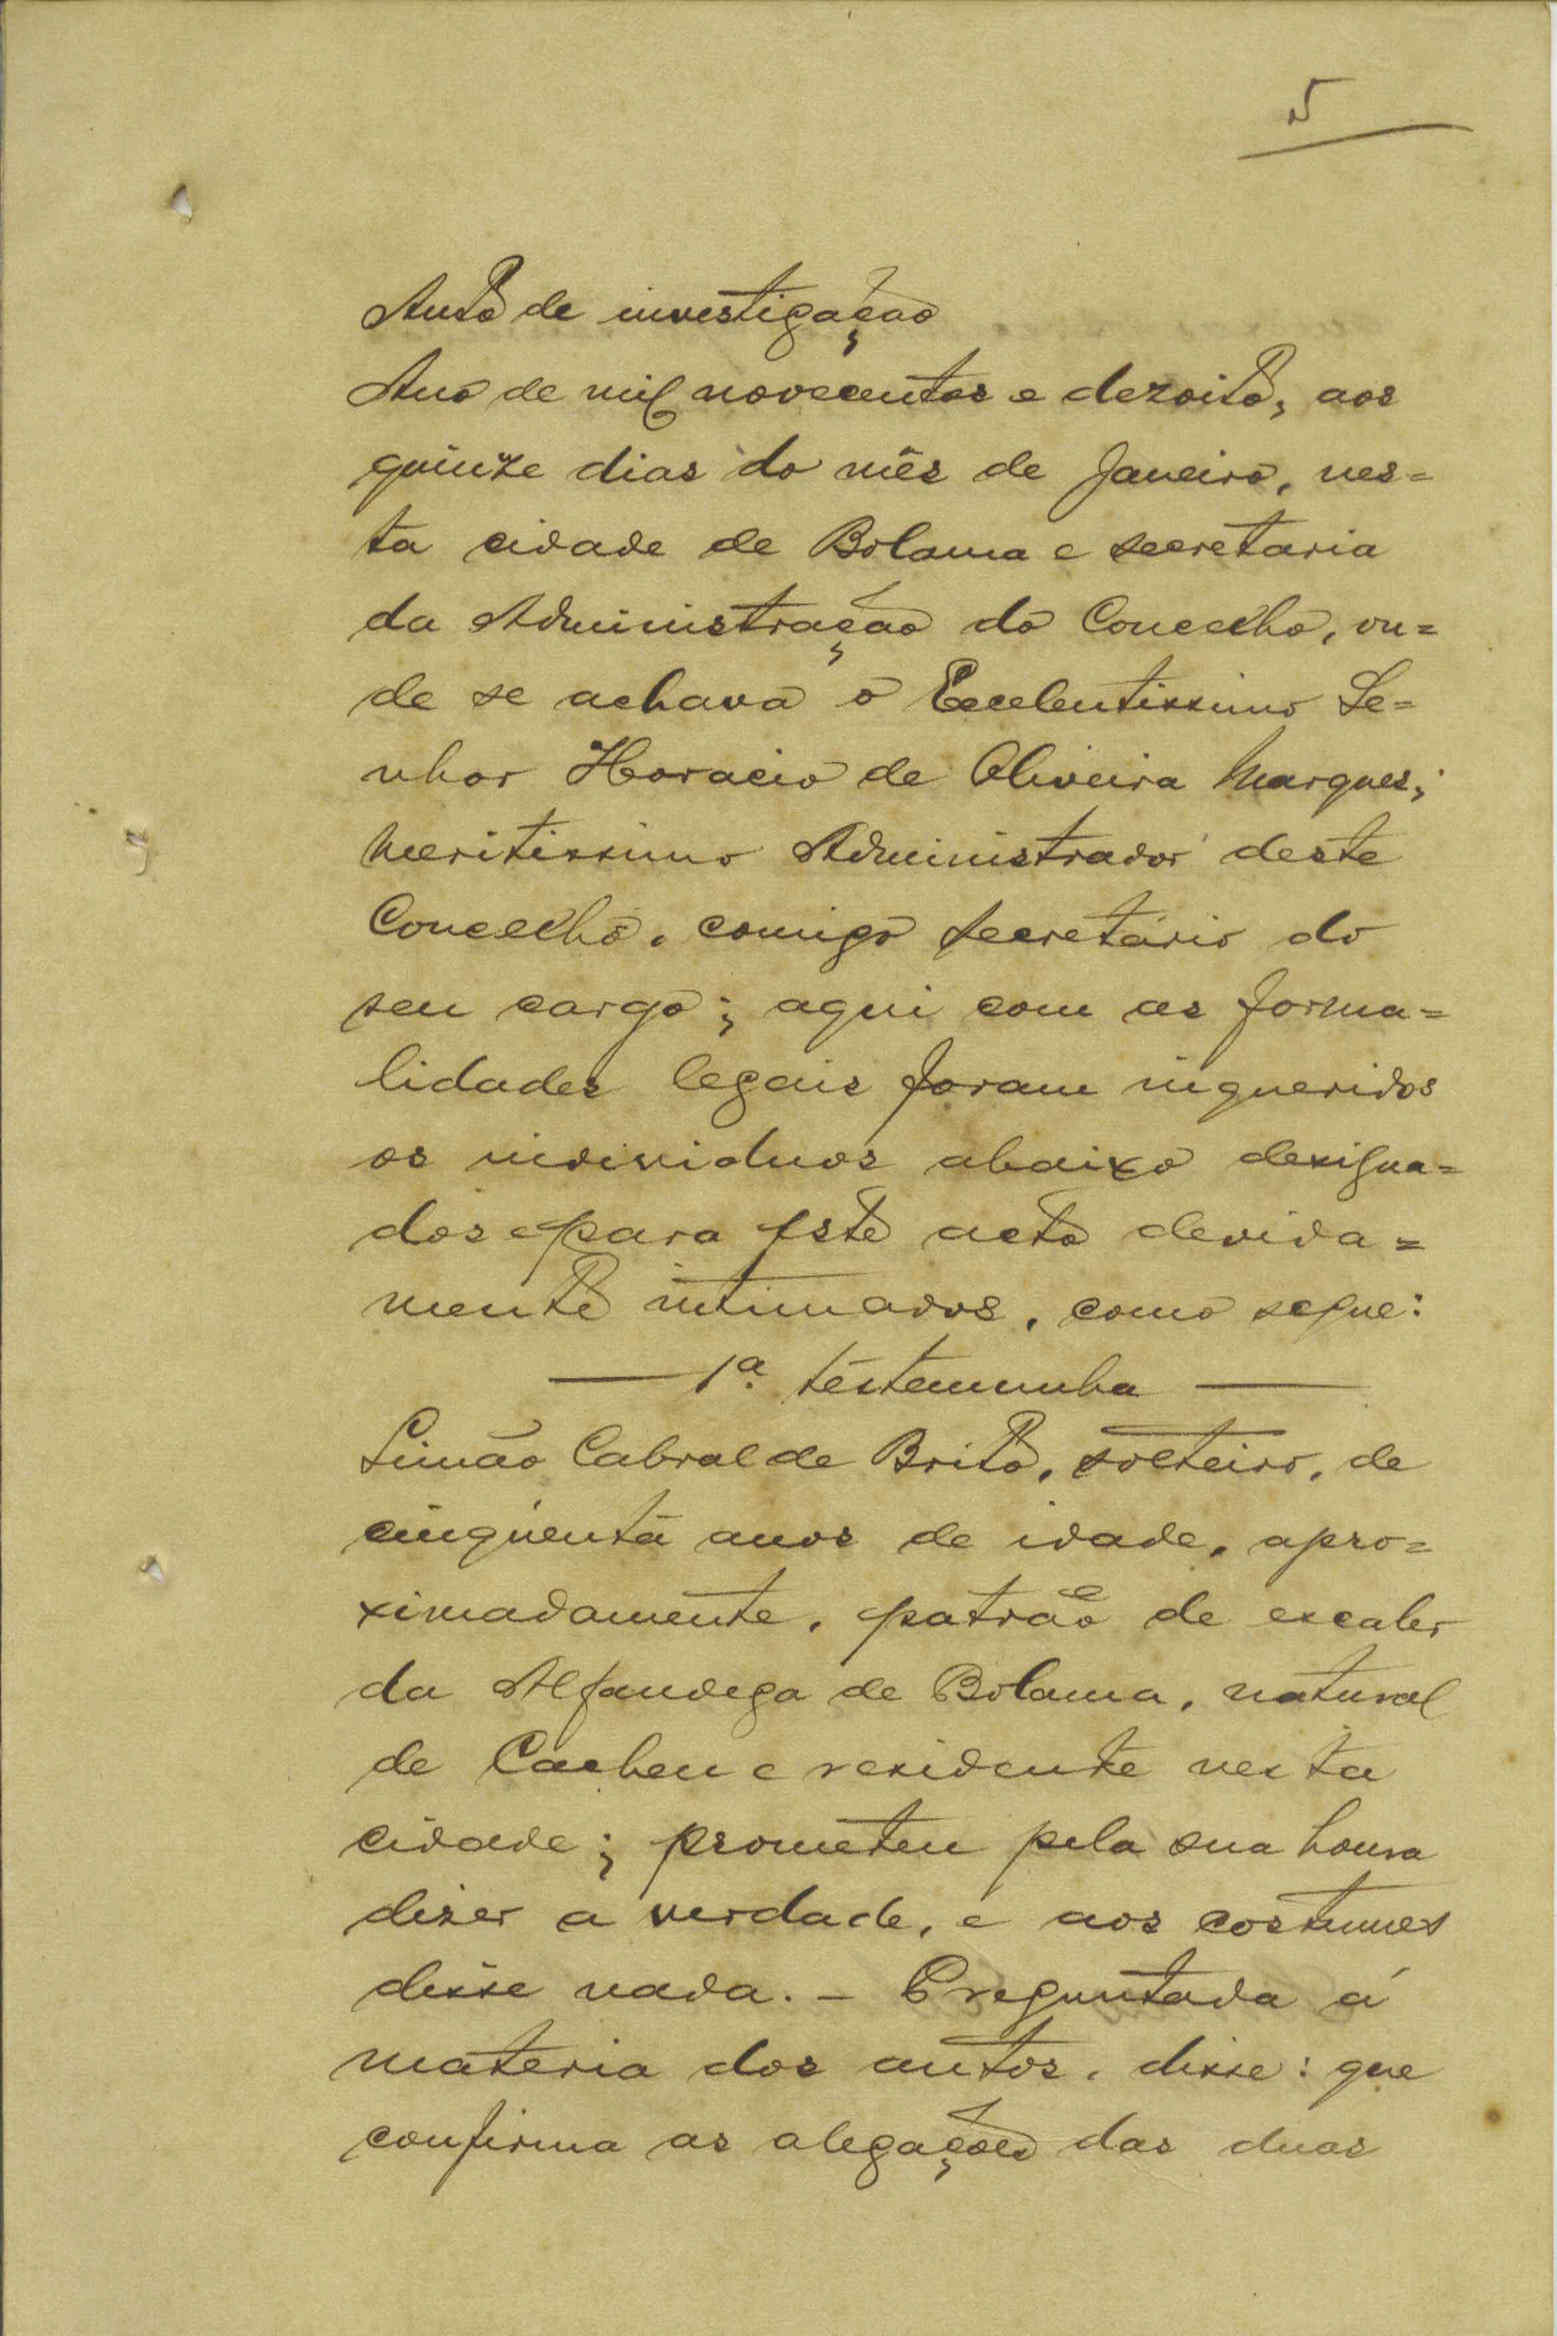 5
Auto de investigação
Ano de mil novecentos e dezoito, aos
quinze dias do mês de Janeiro, nes=
ta cidade de Bolama e secretaria
da Administração do Concelho, on=
de se achava o Excelentissimo Se=
nhor Horacio de Oliveira Marques,
Meritissimo Administrador deste
Concelho, comigo secretário do
seu cargo; aqui com as forma=
lidades legais foram inqueridos
os individuos abaixo designa=
dos e para êste acto devida=
mente intimados, como segue:
— 1ª. testemunha —
Simão Cabral de Brito, solteiro, de
cinqüenta anos de idade, apro=
ximadamente, patrão de escaler
da Alfandega de Bolama, natural
de Cacheu e residente nesta
cidade; prometeu pela sua honra
dizer a verdade, e aos costumes
disse nada. – Preguntada á
materia dos autos, disse: que
confirma as alegações das duas